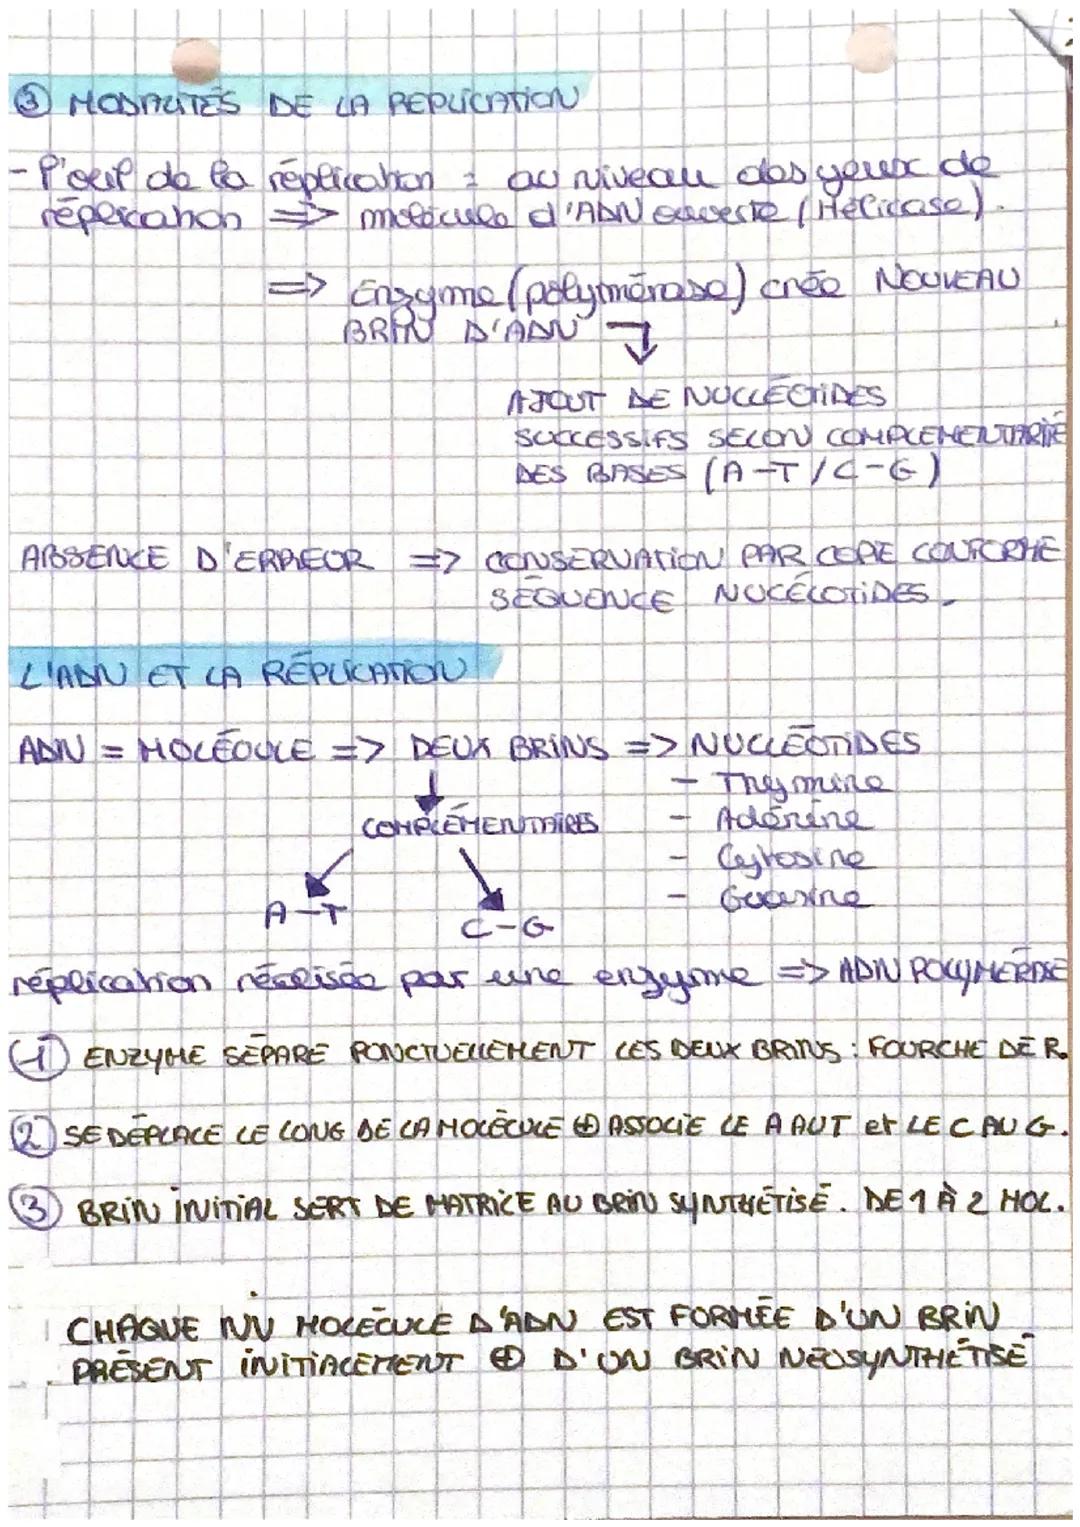 ③ MODALITÉS DE LA REPLICATION
- l'oeil de la réplication : au niveau des yeux de
réplication => molécule d'ADN ouverte (Hélicase).
=> Enzyme (polymérase) crée NOUVEAU
BRIN D'ADN
AJOUT DE NUCLÉOTIDES
SUCCESSIFS SELON COMPLEMENTARITÉ
DES BASES (A-T / C-G)
ABSENCE D'ERREUR => CONSERVATION PAR COPIE CONFORME
SÉQUENCE NUCÉLOTIDES.
L'ADN ET LA RÉPLICATION
ADN = MOLÉCULE => DEUX BRINS => NUCLÉOTIDES
- Thymine
COMPLÉMENTAIRES - Adénine
- Cytosine
A-T - Guanine
C-G
réplication réalisée par une enzyme => ADN POLYMÉRASE
① ENZYME SÉPARE PONCTUELLEMENT LES DEUX BRINS : FOURCHE DE R.
② SE DÉPLACE LE LONG DE LA MOLÉCULE ⊕ ASSOCIE LE A AU T et LE C AU G.
③ BRIN INITIAL SERT DE MATRICE AU BRIN SYNTHÉTISÉ. DE 1 À 2 MOL.
CHAQUE NV MOLÉCULE D'ADN EST FORMÉE D'UN BRIN
PRÉSENT INITIALEMENT ⊕ D'UN BRIN NÉOSYNTHÉTISÉ